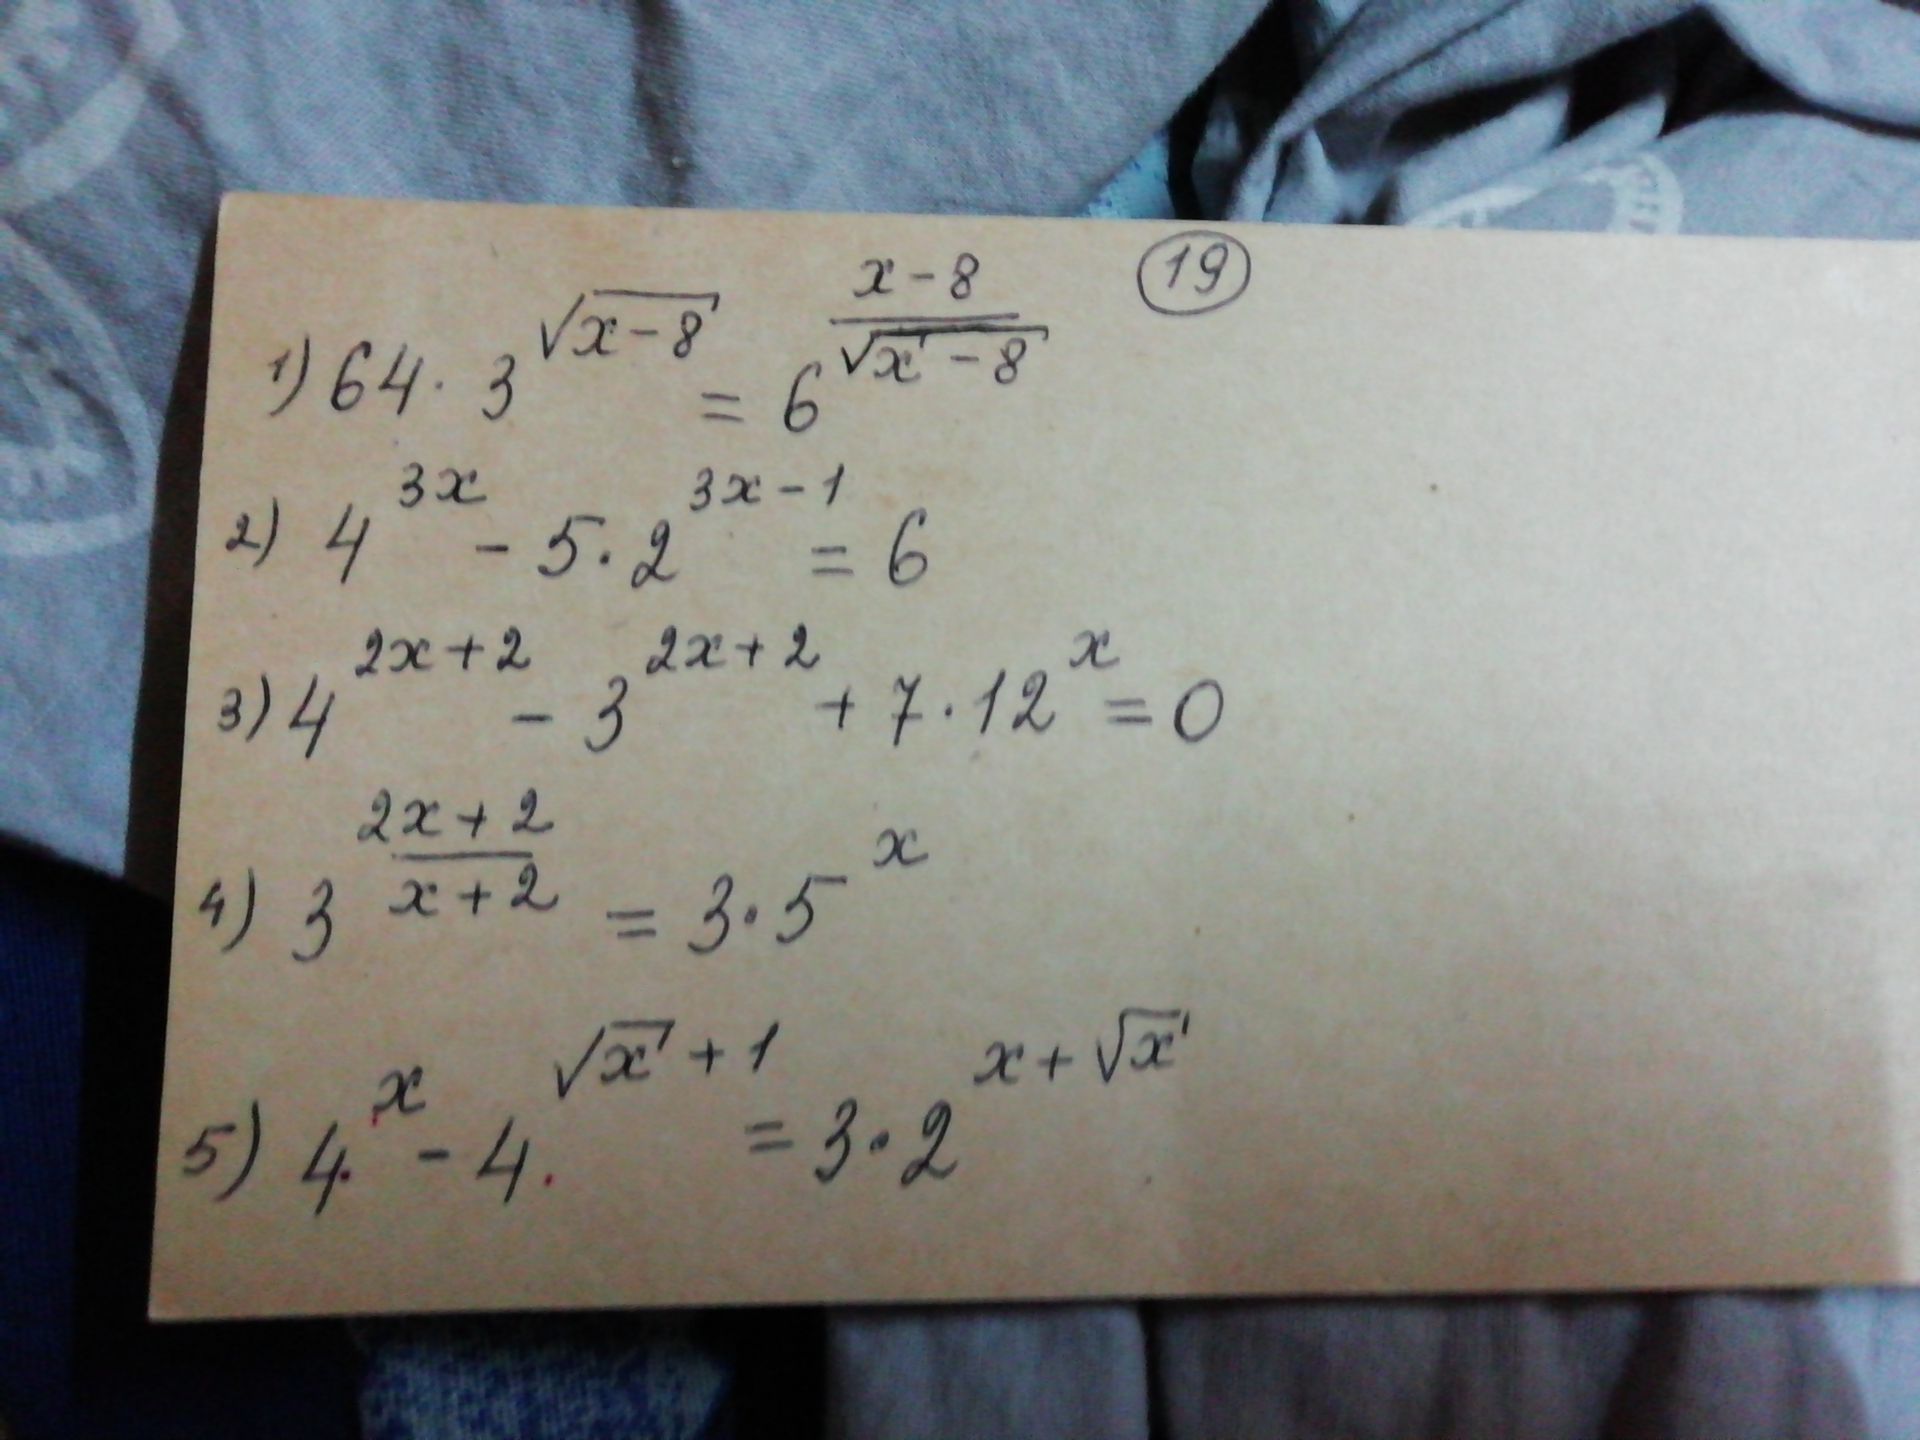 19
1) 64 · 3^{√(x-8)} = 6^{(x-8)/√(x-8)}
2) 4^{3x} - 5 · 2^{3x-1} = 6
3) 4^{2x+2} - 3^{2x+2} + 7 · 12^{x} = 0
4) 3^{(2x+2)/(x+2)} = 3 · 5^{x}
5) 4^{x} - 4^{√x+1} = 3 · 2^{x+√x}